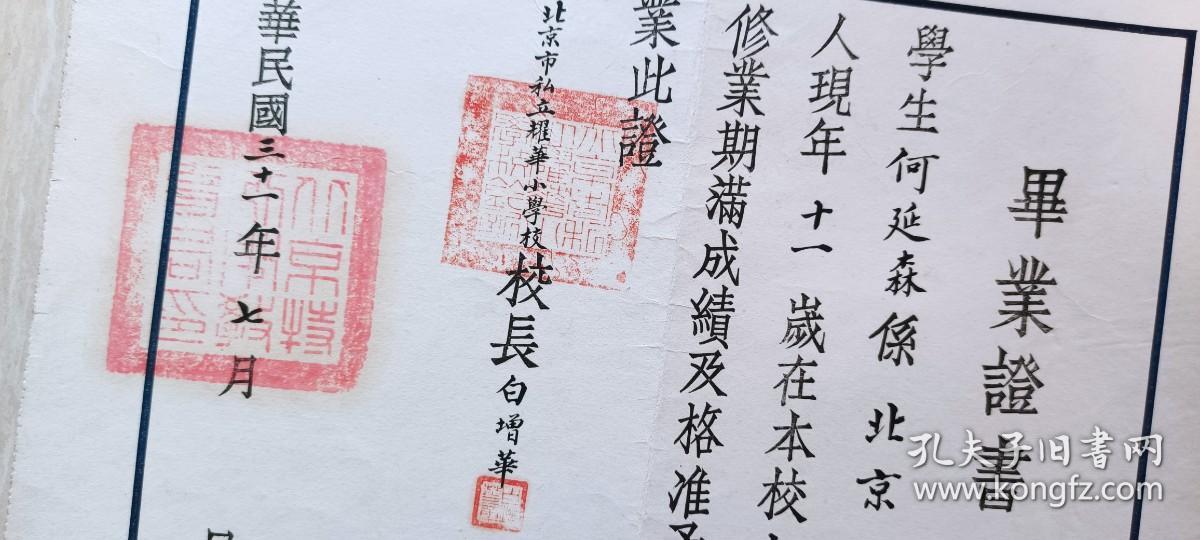 畢業證書
學生何延森係北京
人現年十一歲在本校
修業期滿成績及格准予
業此證
北京市私立耀華小學校校長白增華
華民國三十一年七月
孔夫子旧书网
www.kongfz.com